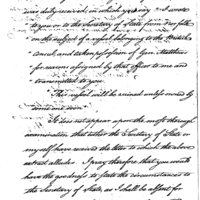 was duly received, in which you say "I wrote
to you or to the Secretary of State from Norfolk
on the subject of a vessel belonging to the British
and not taken possession of Gen. Matthews
for reasons assigned by that officer to me and
transmitted to you
This vessel will be retained unless owned by
some one soon.
It does not appear upon the most thorough
examination that either the Secretary of State or
myself have received the letter to which the above
extract alludes. I pray therefore that you would
have the goodness to state the circumstances to
the Secretary of State, as I shall be absent for